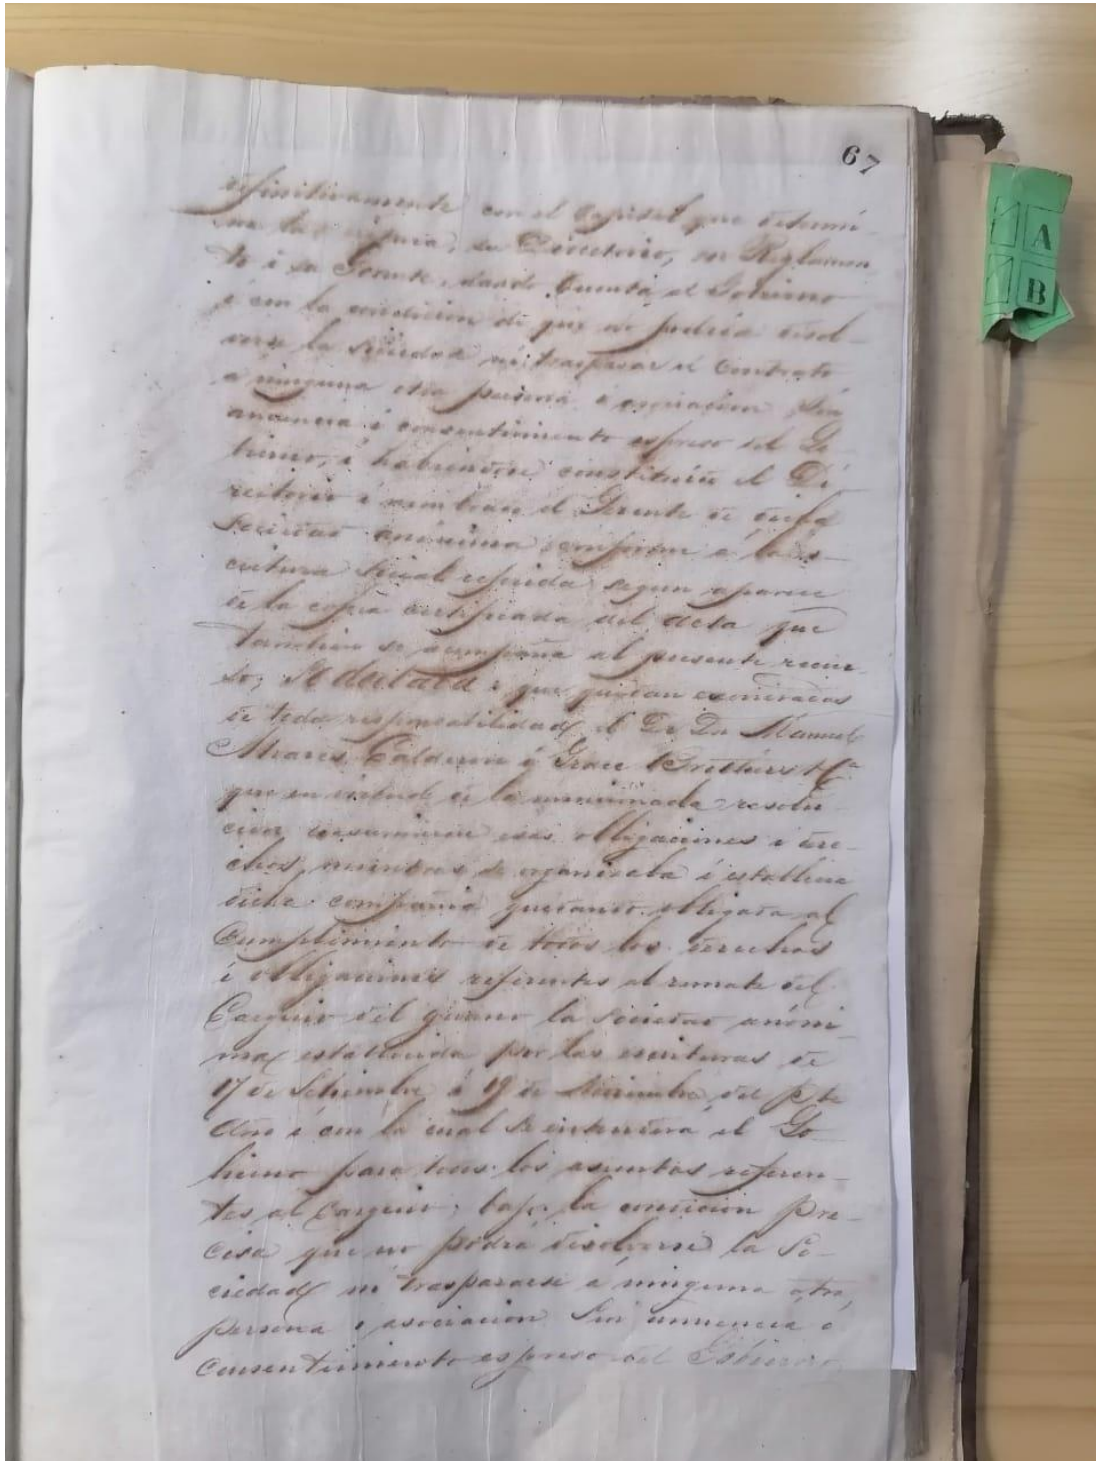 67
A
B
definitivamente con el Capital que determi-
na la su Directorio, su Reglamen
to i su Gerente, dando Cuenta al Gobierno
i con la condicion de que no podria disol-
verse la Sociedad ni traspasar el Contrato
a ninguna otra persona ó asociacion Sin
anuencia i consentimiento espreso del Go-
bierno, i habiendose constituido el Di-
rectorio i nombrado el Gerente de dicha
Sociedad anónima conforme á la es-
critura Social referida segun aparece
de la copia certificada del Acta que
tambien se acompaña al presente recur-
so; Se declara: que quedan exonerados
de toda responsabilidad el Dr Dn Manuel
Alvares Calderon y Grace Brothers Ca
que en virtud de la mencionada resolu-
cion asumieron esas obligaciones i dere-
chos mientras se organizaba i establecia
dicha compañia quedando obligada al
Cumplimiento de todos los derechos
i obligaciones referentes al remate del
Carguio del guano la sociedad anóni
ma establecida por las escrituras de
17 de Setiembre i 19 de del pte
Año i con la cual Se entenderá el Go-
bierno para todos los asuntos referen-
tes al Carguio; bajo la condicion pre-
cisa que no podrá disolverse la So-
ciedad ni traspasarse á ninguna otra,
persona ó asociacion Sin anuencia i
Consentimiento espreso del Gobierno